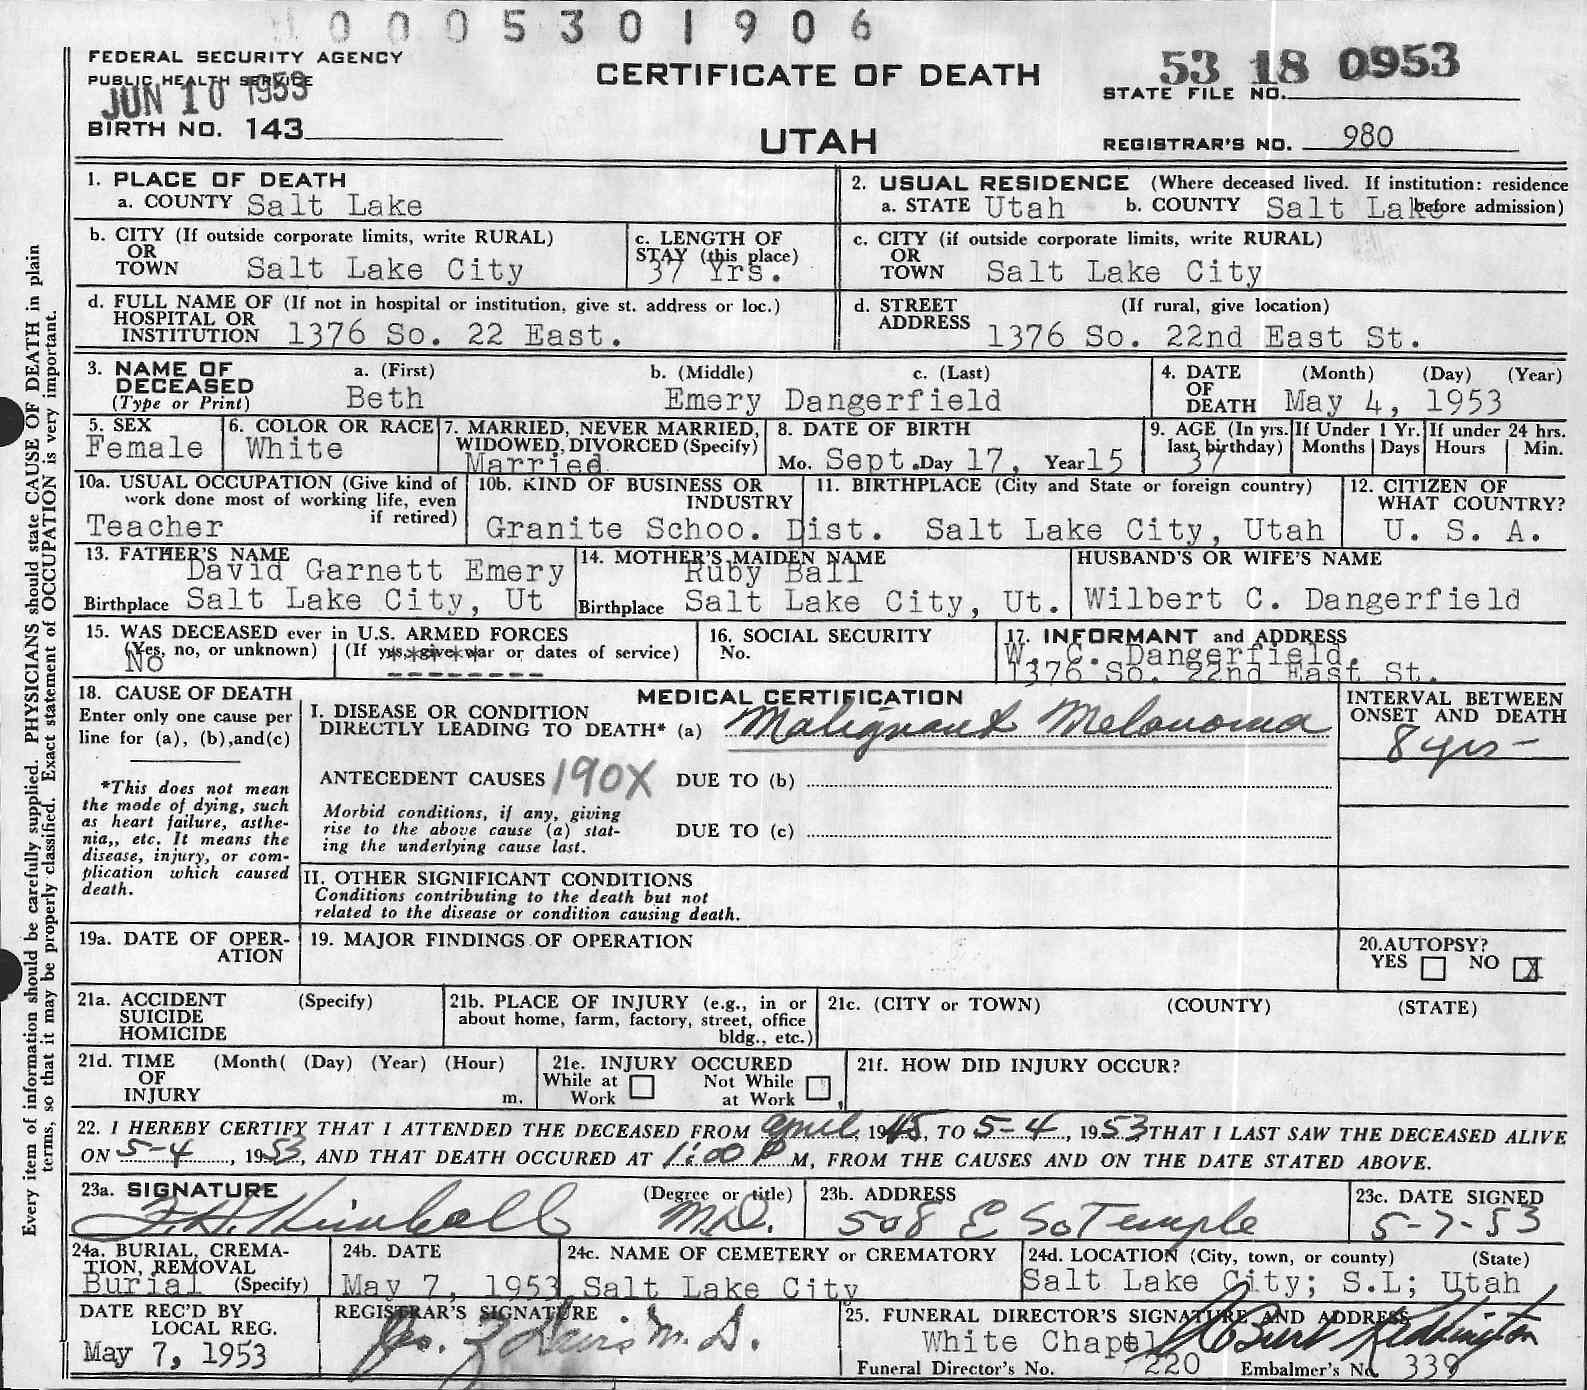 0005301906
FEDERAL SECURITY AGENCY
PUBLIC HEALTH SERVICE
JUN 10 1953
BIRTH NO. 143
CERTIFICATE OF DEATH
UTAH
53 18 0953
STATE FILE NO.
REGISTRAR'S NO. 980
Every item of information should be carefully supplied. PHYSICIANS should state CAUSE OF DEATH in plain
terms, so that it may be properly classified. Exact statement of OCCUPATION is very important.
1. PLACE OF DEATH
a. COUNTY Salt Lake
2. USUAL RESIDENCE (Where deceased lived. If institution: residence
a. STATE Utah b. COUNTY Salt Lake before admission)
b. CITY (If outside corporate limits, write RURAL)
OR
TOWN Salt Lake City
c. LENGTH OF
STAY (this place)
37 Yrs.
c. CITY (if outside corporate limits, write RURAL)
OR
TOWN Salt Lake City
d. FULL NAME OF (If not in hospital or institution, give st. address or loc.)
HOSPITAL OR
INSTITUTION 1376 So. 22 East.
d. STREET (If rural, give location)
ADDRESS 1376 So. 22nd East St.
3. NAME OF a. (First) b. (Middle) c. (Last)
DECEASED
(Type or Print) Beth Emery Dangerfield
4. DATE (Month) (Day) (Year)
OF
DEATH May 4, 1953
5. SEX
Female
6. COLOR OR RACE
White
7. MARRIED, NEVER MARRIED,
WIDOWED, DIVORCED (Specify)
Married
8. DATE OF BIRTH
Mo. Sept. Day 17, Year 15
9. AGE (In yrs.
last birthday)
37
If Under 1 Yr.
Months Days
If under 24 hrs.
Hours Min.
10a. USUAL OCCUPATION (Give kind of
work done most of working life, even
if retired)
Teacher
10b. KIND OF BUSINESS OR
INDUSTRY
Granite Schoo. Dist.
11. BIRTHPLACE (City and State or foreign country)
Salt Lake City, Utah
12. CITIZEN OF
WHAT COUNTRY?
U. S. A.
13. FATHER'S NAME
David Garnett Emery
Birthplace Salt Lake City, Ut
14. MOTHER'S MAIDEN NAME
Ruby Ball
Birthplace Salt Lake City, Ut.
HUSBAND'S OR WIFE'S NAME
Wilbert C. Dangerfield
15. WAS DECEASED ever in U.S. ARMED FORCES
(Yes, no, or unknown) (If yes, give war or dates of service)
No --------
16. SOCIAL SECURITY
No.
17. INFORMANT and ADDRESS
W. C. Dangerfield.
1376 So. 22nd East St.
18. CAUSE OF DEATH
Enter only one cause per
line for (a), (b),and(c)
*This does not mean
the mode of dying, such
as heart failure, asthe-
nia,, etc. It means the
disease, injury, or com-
plication which caused
death.
MEDICAL CERTIFICATION
I. DISEASE OR CONDITION
DIRECTLY LEADING TO DEATH* (a) Malignant Melanoma
INTERVAL BETWEEN
ONSET AND DEATH
8 yrs -
ANTECEDENT CAUSES 190X DUE TO (b)
Morbid conditions, if any, giving
rise to the above cause (a) stat-
ing the underlying cause last.
DUE TO (c)
II. OTHER SIGNIFICANT CONDITIONS
Conditions contributing to the death but not
related to the disease or condition causing death.
19a. DATE OF OPER-
ATION
19. MAJOR FINDINGS OF OPERATION
20.AUTOPSY?
YES NO X
21a. ACCIDENT (Specify)
SUICIDE
HOMICIDE
21b. PLACE OF INJURY (e.g., in or
about home, farm, factory, street, office
bldg., etc.)
21c. (CITY or TOWN) (COUNTY) (STATE)
21d. TIME (Month( (Day) (Year) (Hour)
OF
INJURY m.
21e. INJURY OCCURED
While at Not While
Work at Work
21f. HOW DID INJURY OCCUR?
22. I HEREBY CERTIFY THAT I ATTENDED THE DECEASED FROM April, 1945, TO 5-4, 1953 THAT I LAST SAW THE DECEASED ALIVE
ON 5-4, 1953, AND THAT DEATH OCCURED AT 1:00 P M, FROM THE CAUSES AND ON THE DATE STATED ABOVE.
23a. SIGNATURE (Degree or title)
F.H. Kimball M.D.
23b. ADDRESS
508 E So Temple
23c. DATE SIGNED
5-7-53
24a. BURIAL, CREMA-
TION, REMOVAL
Burial (Specify)
24b. DATE
May 7, 1953
24c. NAME OF CEMETERY or CREMATORY
Salt Lake City
24d. LOCATION (City, town, or county) (State)
Salt Lake City; S.L; Utah
DATE REC'D BY
LOCAL REG.
May 7, 1953
REGISTRAR'S SIGNATURE
M. D.
25. FUNERAL DIRECTOR'S SIGNATURE AND ADDRESS
White Chapel
Funeral Director's No. 220 Embalmer's No. 339